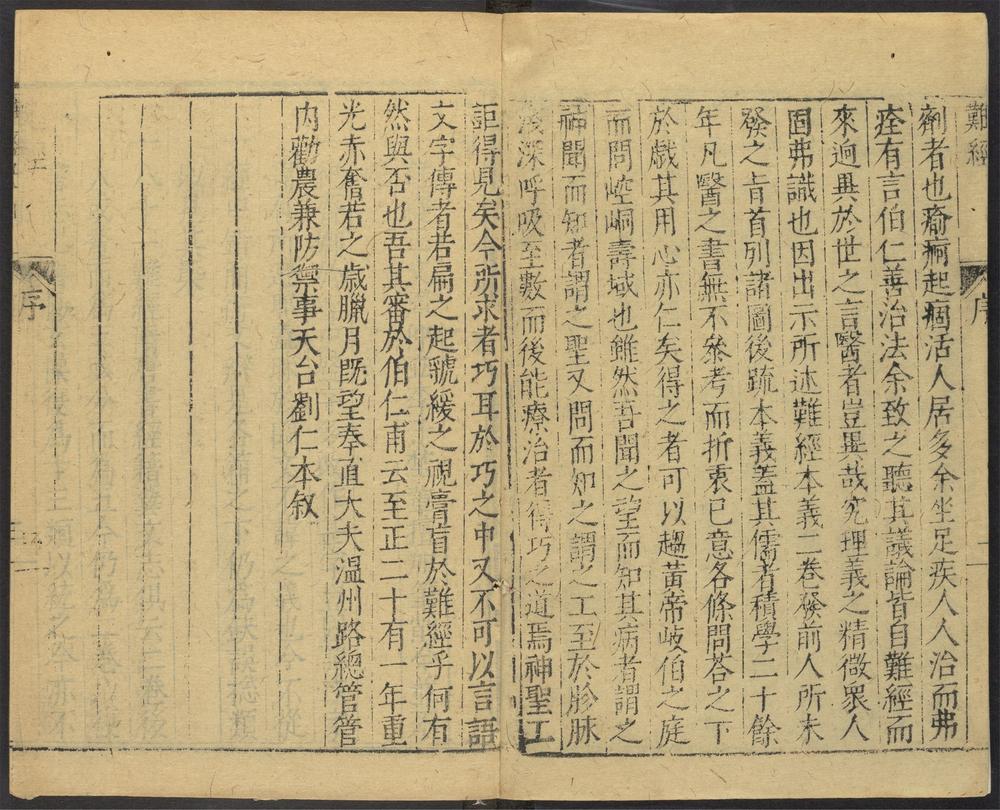 難經
序
劑者也瘉痾起痼活人居多余坐足疾人人治而弗
痊有言伯仁善治法余致之聽其議論皆自難經而
來迥異於世之言醫者豈異哉究理義之精微眾人
固弗識也因出示所述難經本義二卷發前人所未
發之旨首列諸圖後疏本義蓋其儒者積學二十餘
年凡醫之書無不參考而折衷已意各條問荅之下
於戲其用心亦仁矣得之者可以趨黃帝岐伯之庭
而問崆峒壽域也雖然吾聞之望而知其病者謂之
神聞而知者謂之聖又問而知之謂之工至於胗脉
淺深呼吸至數而後能療治者得巧之道焉神聖工
詎得見矣今所求者巧耳於巧之中又不可以言語
文字傳者若扁之起虢緩之視膏肓於難經乎何有
然與否也吾其審於伯仁甫云至正二十有一年重
光赤奮若之歲臘月旣望奉直大夫溫州路總管管
內勸農兼防禦事天台劉仁本叙
序